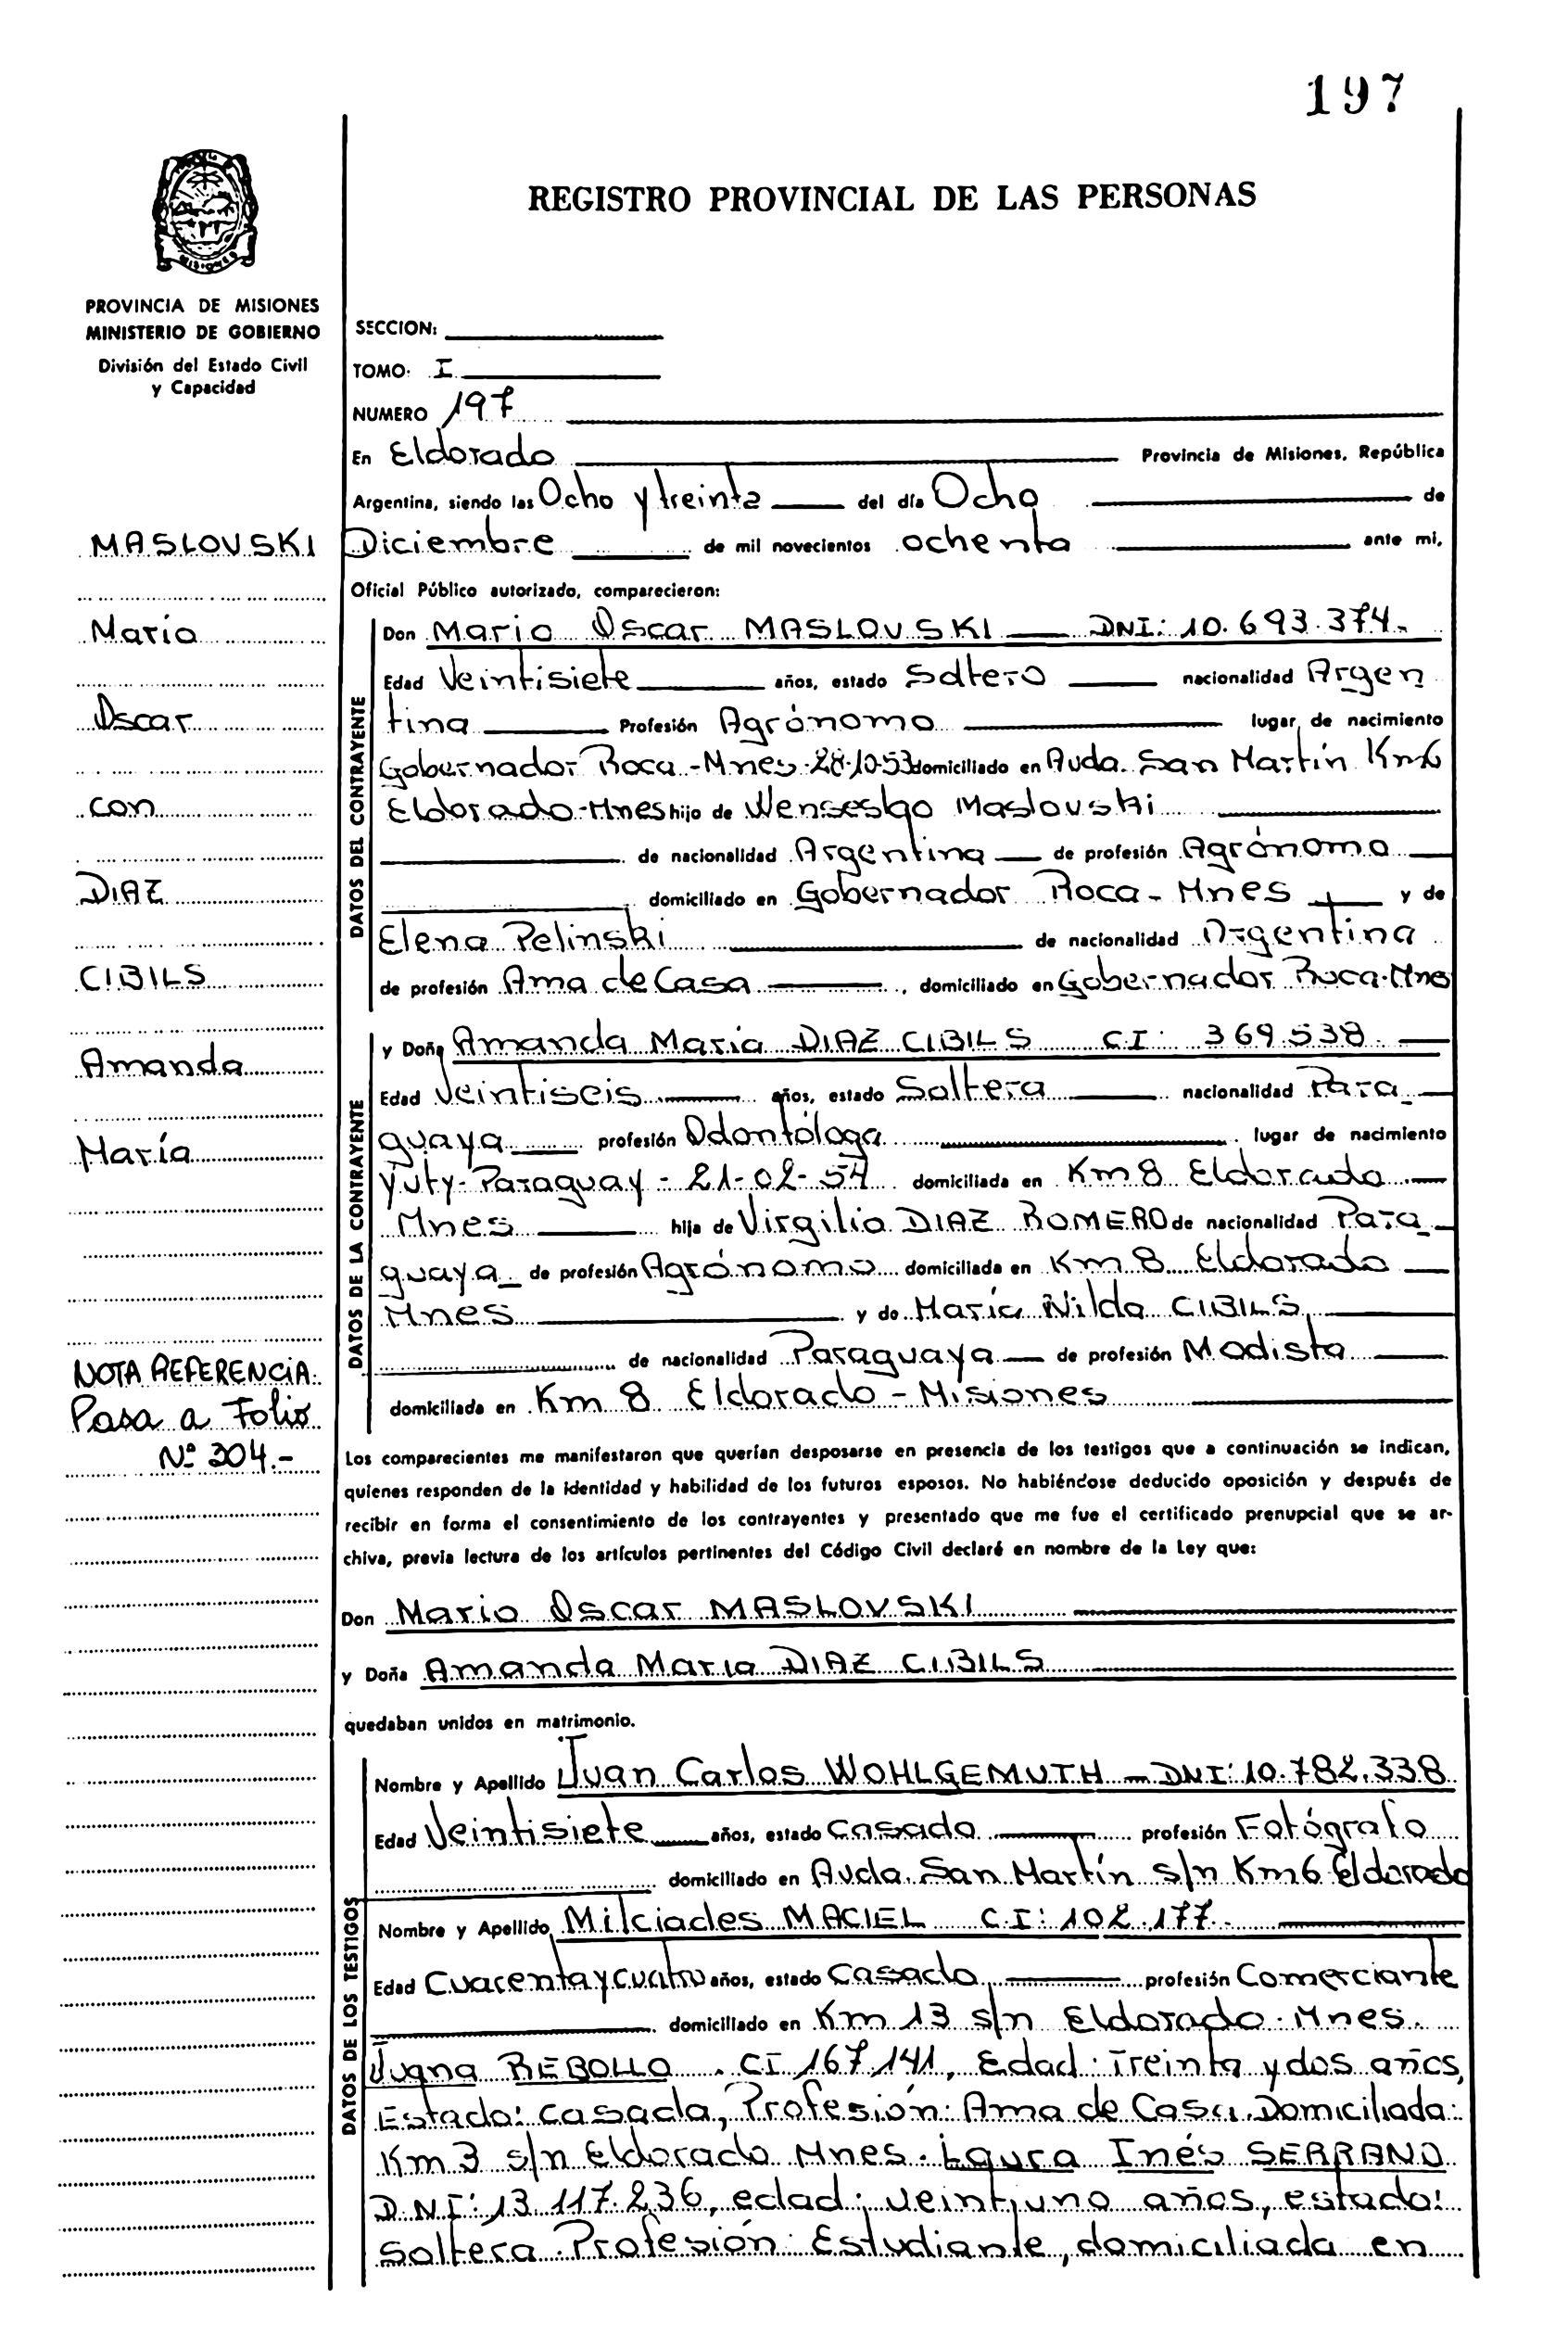 197
REGISTRO PROVINCIAL DE LAS PERSONAS
MISIONES
PROVINCIA DE MISIONES
MINISTERIO DE GOBIERNO
División del Estado Civil
y Capacidad
MASLOVSKI
Mario
Oscar
con
DIAZ
CIBILS
Amanda
María
NOTA REFERENCIA:
Pasa a Folio
Nº 304.-
SECCION:
TOMO: I
NUMERO 197
En Eldorado Provincia de Misiones, República
Argentina, siendo las Ocho y treinta del día Ocho de
Diciembre de mil novecientos ochenta ante mi,
Oficial Público autorizado, comparecieron:
DATOS DEL CONTRAYENTE
Don Mario Oscar MASLOVSKI DNI: 10.693.374.
Edad Veintisiete años, estado Soltero nacionalidad Argen
tina Profesión Agrónomo lugar de nacimiento
Gobernador Roca-Mnes-28-10-53 domiciliado en Avda. San Martín Km6
Eldorado-Mnes hijo de Wenseslao Maslovski
de nacionalidad Argentina de profesión Agrónomo
domiciliado en Gobernador Roca-Mnes y de
Elena Pelinski de nacionalidad Argentina
de profesión Ama de Casa, domiciliado en Gobernador Roca-Mnes
DATOS DE LA CONTRAYENTE
y Doña Amanda María DIAZ CIBILS CI: 369.538.
Edad Veintiseis años, estado Soltera nacionalidad Para
guaya profesión Odontóloga lugar de nacimiento
Yuty-Paraguay-21-02-54 domiciliada en Km 8 Eldorado
Mnes hija de Virgilio DIAZ ROMERO de nacionalidad Para
guaya de profesión Agrónomo domiciliada en Km 8 Eldorado
Mnes y de María Nilda CIBILS
de nacionalidad Paraguaya de profesión Modista
domiciliada en Km 8 Eldorado-Misiones
Los comparecientes me manifestaron que querían desposarse en presencia de los testigos que a continuación se indican,
quienes responden de la identidad y habilidad de los futuros esposos. No habiéndose deducido oposición y después de
recibir en forma el consentimiento de los contrayentes y presentado que me fue el certificado prenupcial que se ar-
chiva, previa lectura de los artículos pertinentes del Código Civil declaré en nombre de la Ley que:
Don Mario Oscar MASLOVSKI
y Doña Amanda Maria DIAZ CIBILS
quedaban unidos en matrimonio.
DATOS DE LOS TESTIGOS
Nombre y Apellido Juan Carlos WOHLGEMUTH - DNI: 10.782.338
Edad Veintisiete años, estado Casado profesión Fotógrafo
domiciliado en Avda. San Martín s/n Km6 Eldorado
Nombre y Apellido Milciades MACIEL C.I: 102.177.
Edad Cuarenta y cuatro años, estado Casado profesión Comerciante
domiciliado en Km 13 s/n Eldorado-Mnes.
Juana REBOLLO. CI 167.141, Edad: Treinta y dos años,
Estado: casada, Profesión: Ama de Casa. Domiciliada:
Km 3 s/n Eldorado Mnes. Laura Inés SERRANO
D.N.I: 13.117.236, edad: veintiuno años, estado:
Soltera Profesión: Estudiante, domiciliada en